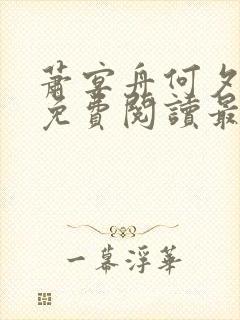 蕭宴舟何夕
免費閱讀最
一幕浮華